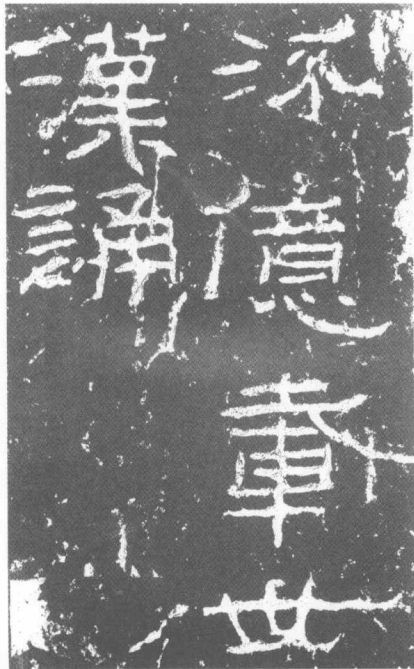 流億載世
漢誦